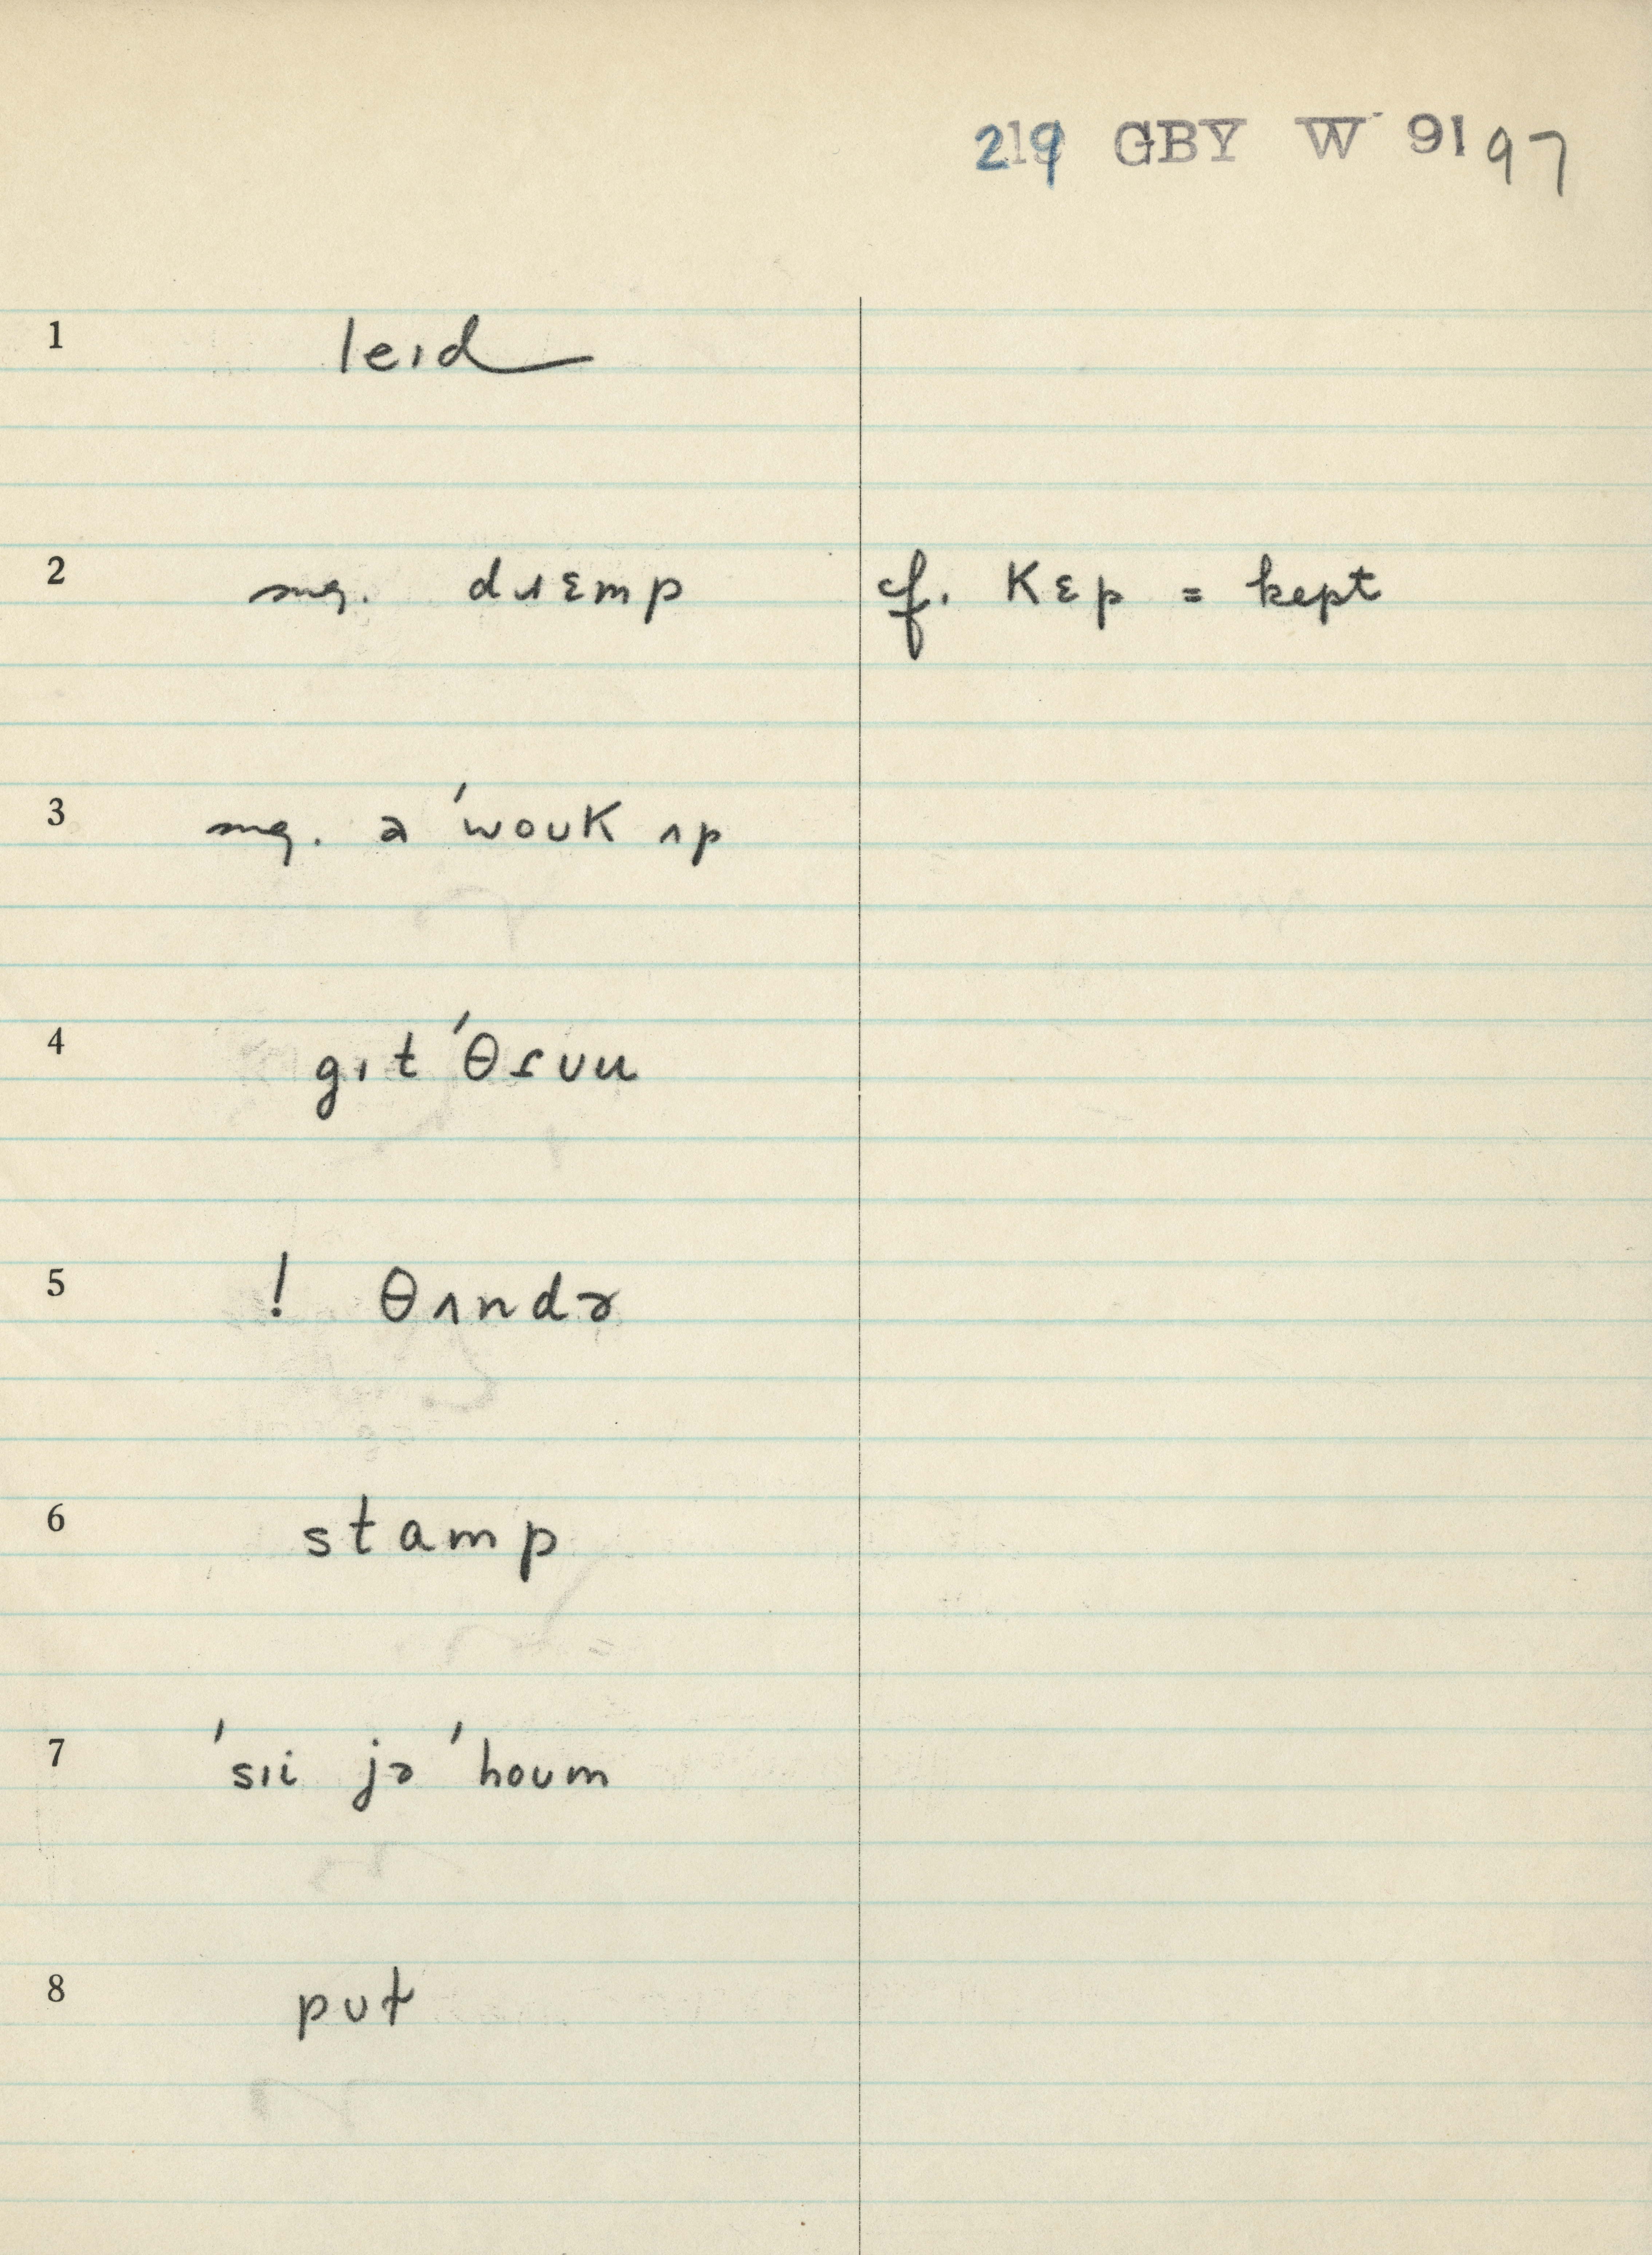 219 GBY W 91 97
1 leɪd
2 sug. dɹɛmp cf. kɛp = kept
3 sug. ə ˈwoʊk ʌp
4 gɪt ˈθɾʊu
5 ! θʌndɚ
6 stamp
7 ˈsɪi jɚ ˈhoʊm
8 pʊt